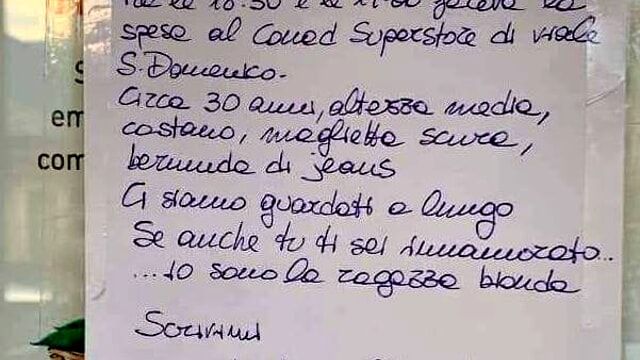 spese al Conad Superstore di viale
S. Domenico.
Circa 30 anni, altezza media,
castano, maglietta scura,
em
com
bermuda di jeans
Ci siamo guardati a lungo
Se anche tu ti sei innamorato...
...io sono la ragazza bionda
Scrivimi